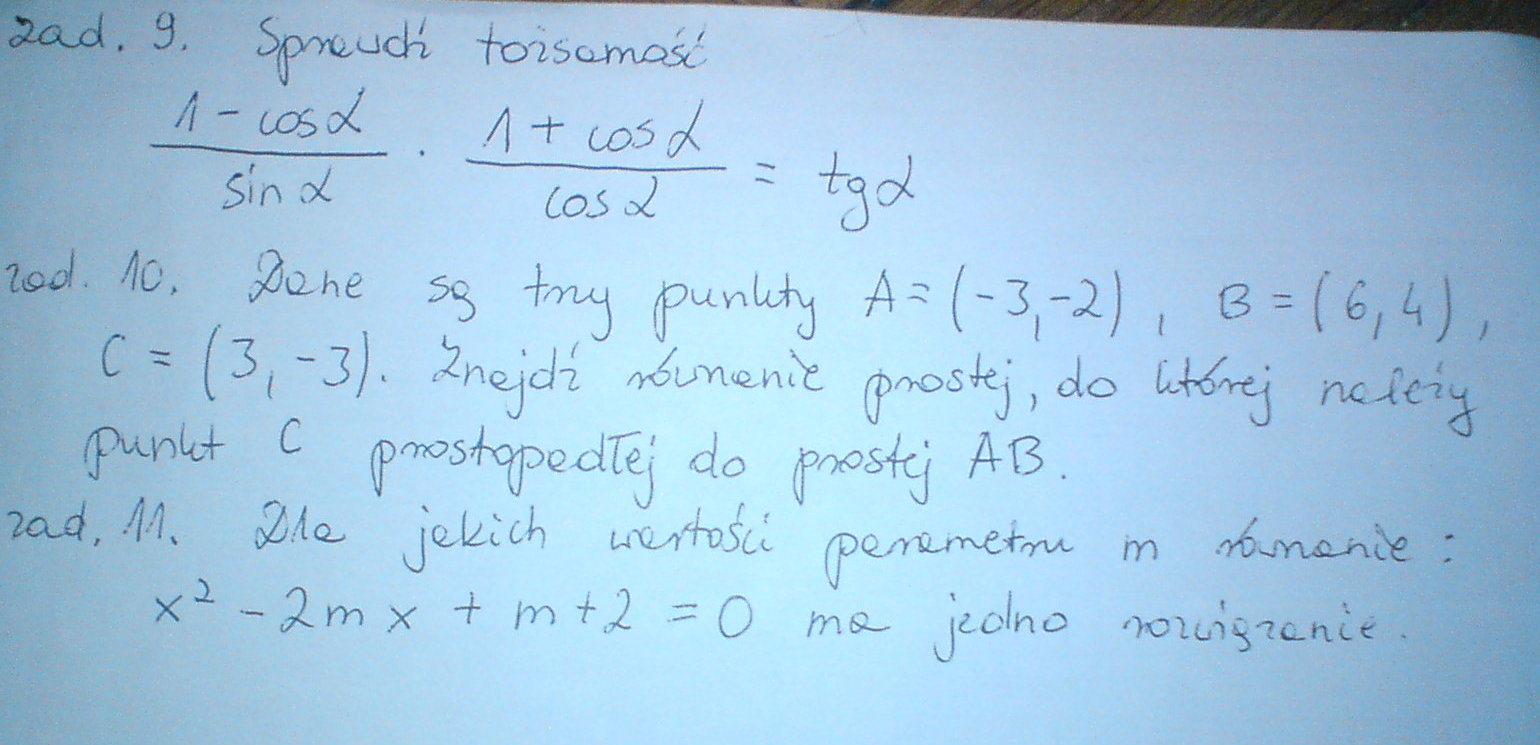 zad. 9. Sprawdź tożsamość
1 - cosα / sin α · 1 + cos α / cos α = tg α
zad. 10. Dane są trzy punkty A = (-3, -2), B = (6, 4),
C = (3, -3). Znajdź równanie prostej, do której należy
punkt C prostopadłej do prostej AB.
zad. 11. Dla jakich wartości parametru m równanie:
x² - 2mx + m + 2 = 0 ma jedno rozwiązanie.